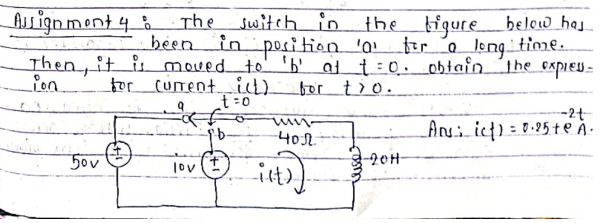 Assignment 4 : The switch in the figure below has
been in position 'a' for a long time.
Then, it is moved to 'b' at t = 0. obtain the express-
ion for current i(t) for t > 0.
a t=0
b
40Ω
Ans: i(t) = 0.25+e^-2t A.
50V
10V
i(t)
20H